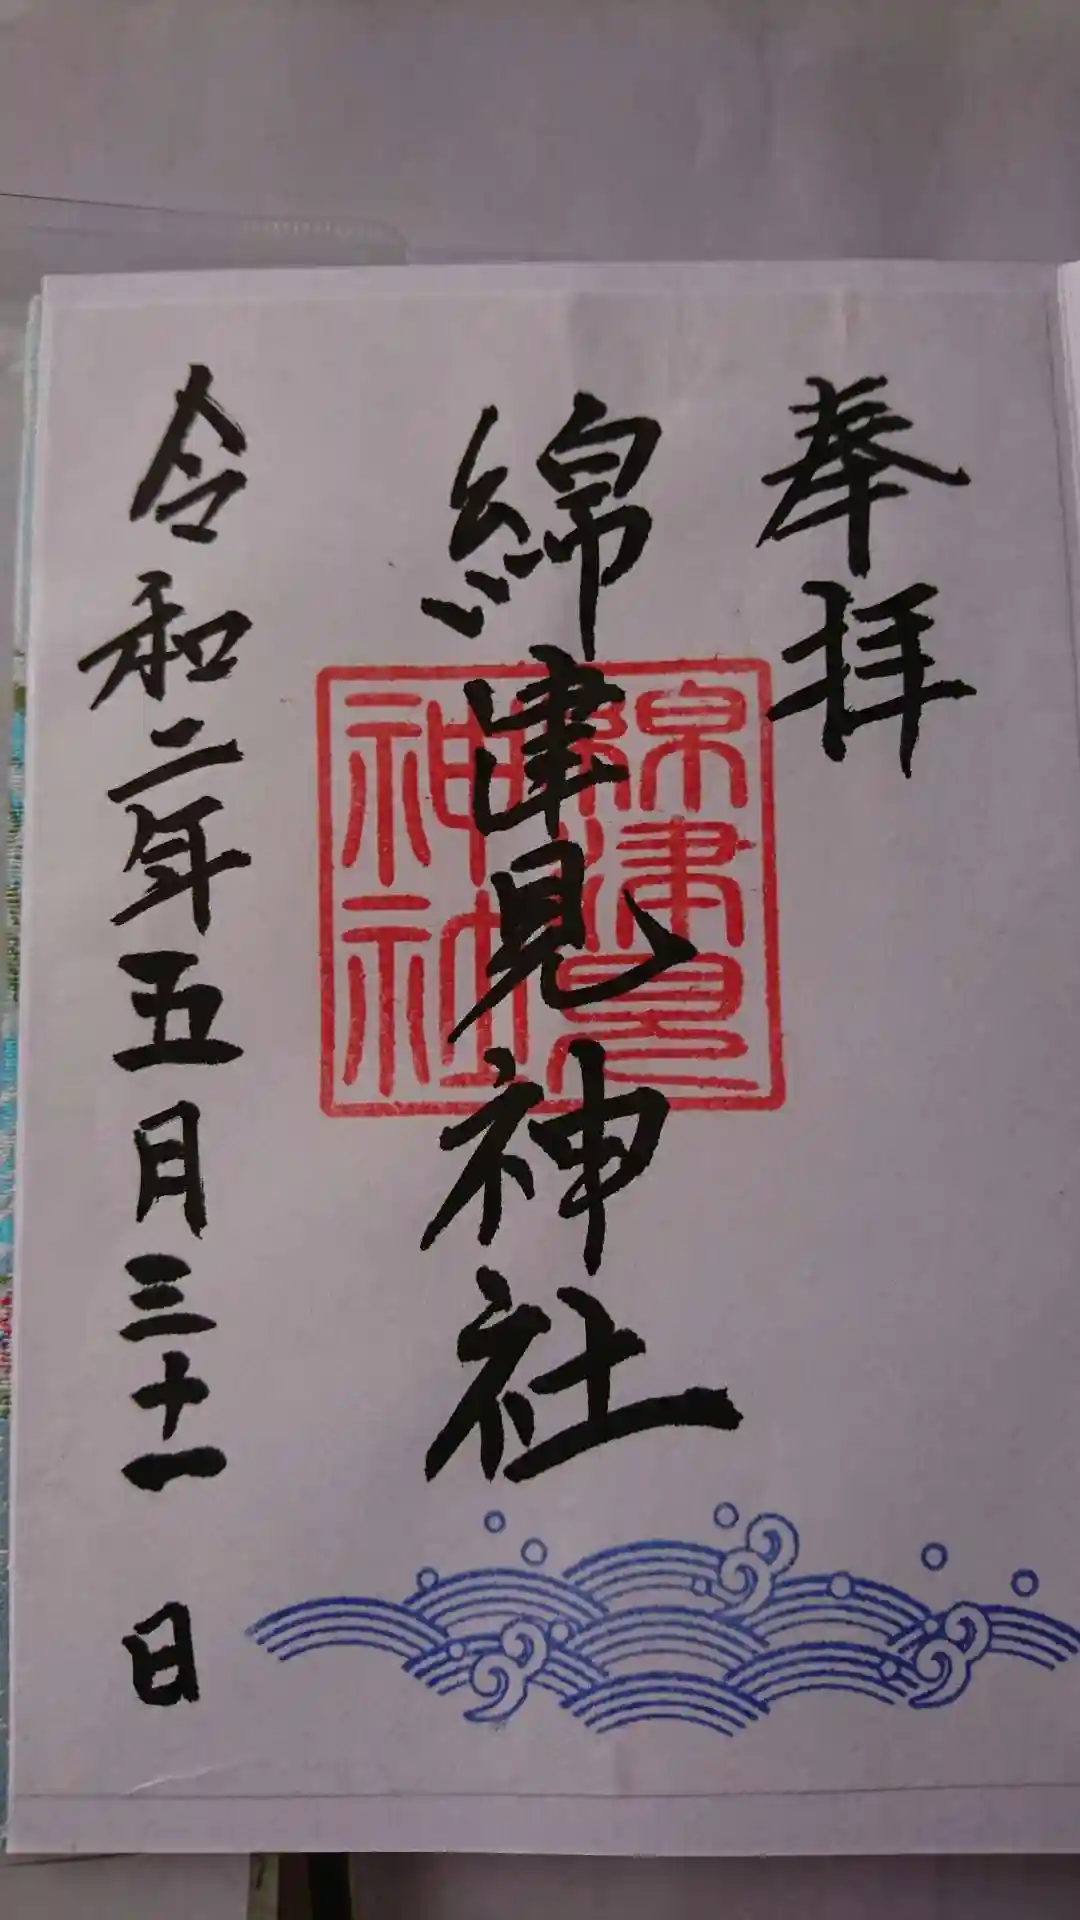 奉拝
綿津見神社
綿津見
神社
令和二年五月三十一日